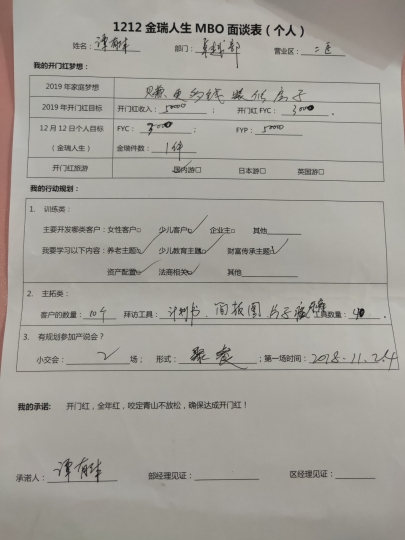 1212金瑞人生MBO面谈表（个人）
姓名： 谭有 部门： 部 营业区： 二区
我的开门红梦想：
2019年家庭梦想 赚更多钱 装修房子
2019年开门红目标 开门红收入： 50000 ； 开门红FYC： 30000 .
12月12日个人目标 FYC： 30000 ； FYP： 50000
（金瑞人生） 金瑞件数： 1件
开门红旅游 国内游□ 日本游□ 英国游□
我的行动规划：
1. 训练类：
主要开发哪类客户：女性客户□ 少儿客户□ 企业主□ 其他
我要学习以下内容：养老主题□ 少儿教育主题□ 财富传承主题□
资产配置□ 法商相关□ 其他
2. 主拓类：
客户的数量： 10个 拜访工具： 计划书、简报图 工具数量： 40 .
3. 有规划参加产说会？
小交会： 2 场； 形式： 聚餐 ；第一场时间： 2018.11.24
我的承诺： 开门红，全年红，咬定青山不放松，确保达成开门红！
承诺人： 谭有 部经理见证： 区经理见证：